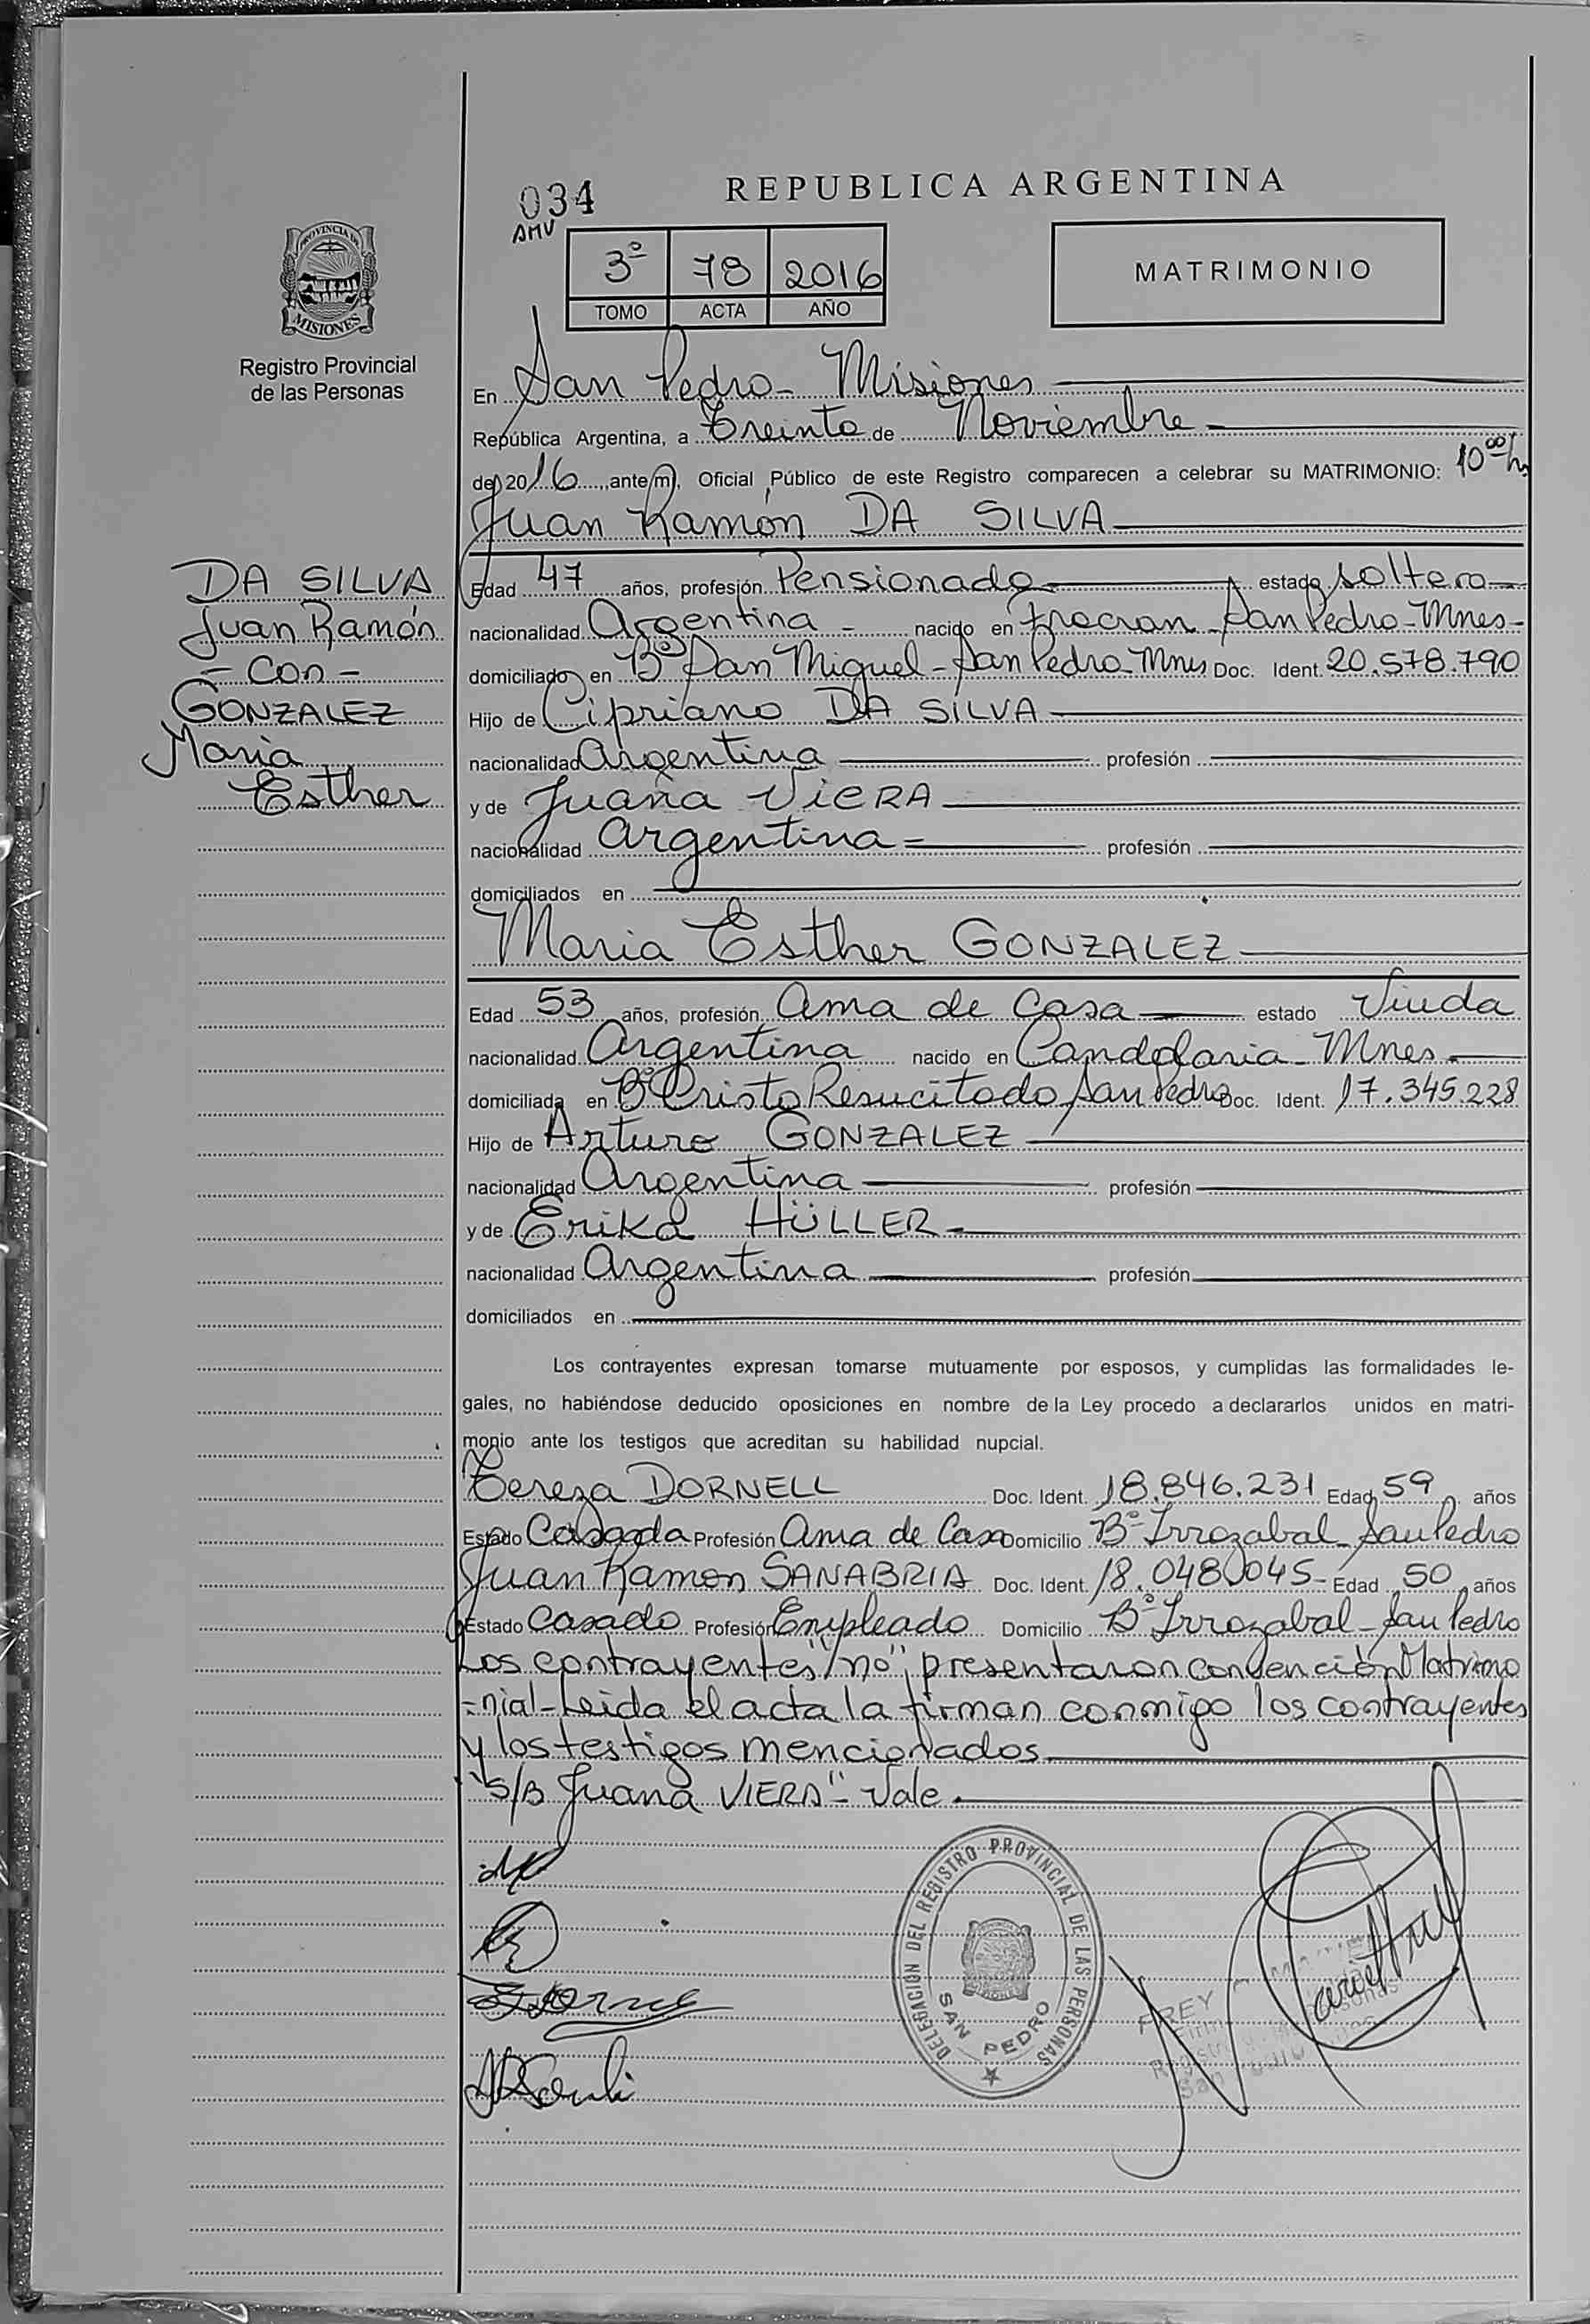 034
AMV
REPUBLICA ARGENTINA
3º 78 2016
TOMO ACTA AÑO
MATRIMONIO
PROVINCIA DE
MISIONES
Registro Provincial
de las Personas
En San Pedro - Misiones
República Argentina, a Treinta de Noviembre
de 2016, ante mí, Oficial Público de este Registro comparecen a celebrar su MATRIMONIO: 10⁰⁰ hs
Juan Ramón DA SILVA
DA SILVA
Juan Ramón
- Con -
GONZALEZ
Maria
Esther
Edad 47 años, profesión Pensionado estado soltero
nacionalidad Argentina - nacido en Fracran San Pedro - Mnes -
domiciliado en Bº San Miguel - San Pedro - Mnes Doc. Ident. 20.578.790
Hijo de Cipriano DA SILVA
nacionalidad Argentina profesión
y de Juana VIERA
nacionalidad Argentina profesión
domiciliados en
Maria Esther GONZALEZ
Edad 53 años, profesión Ama de Casa estado Viuda
nacionalidad Argentina nacido en Candelaria - Mnes
domiciliada en Bº Cristo Resucitado San Pedro Doc. Ident. 17.345.228
Hijo de Arturo GONZALEZ
nacionalidad Argentina profesión
y de Erika HÜLLER
nacionalidad Argentina profesión
domiciliados en
Los contrayentes expresan tomarse mutuamente por esposos, y cumplidas las formalidades le-
gales, no habiéndose deducido oposiciones en nombre de la Ley procedo a declararlos unidos en matri-
monio ante los testigos que acreditan su habilidad nupcial.
Tereza DORNELL Doc. Ident. 18.846.231 Edad 59 años
Estado Casada Profesión Ama de Casa Domicilio Bº Irrazabal - San Pedro
Juan Ramon SANABRIA Doc. Ident. 18.048.045 - Edad 50 años
Estado Casado Profesión Empleado Domicilio Bº Irrozabal - San Pedro
Los contrayentes "no" presentaron convención Matrimo
=nial - Leida el acta la firman conmigo los contrayentes
y los testigos mencionados
"S/B Juana VIERA" - Vale.
DELEGACIÓN DEL REGISTRO PROVINCIAL DE LAS PERSONAS
SAN PEDRO